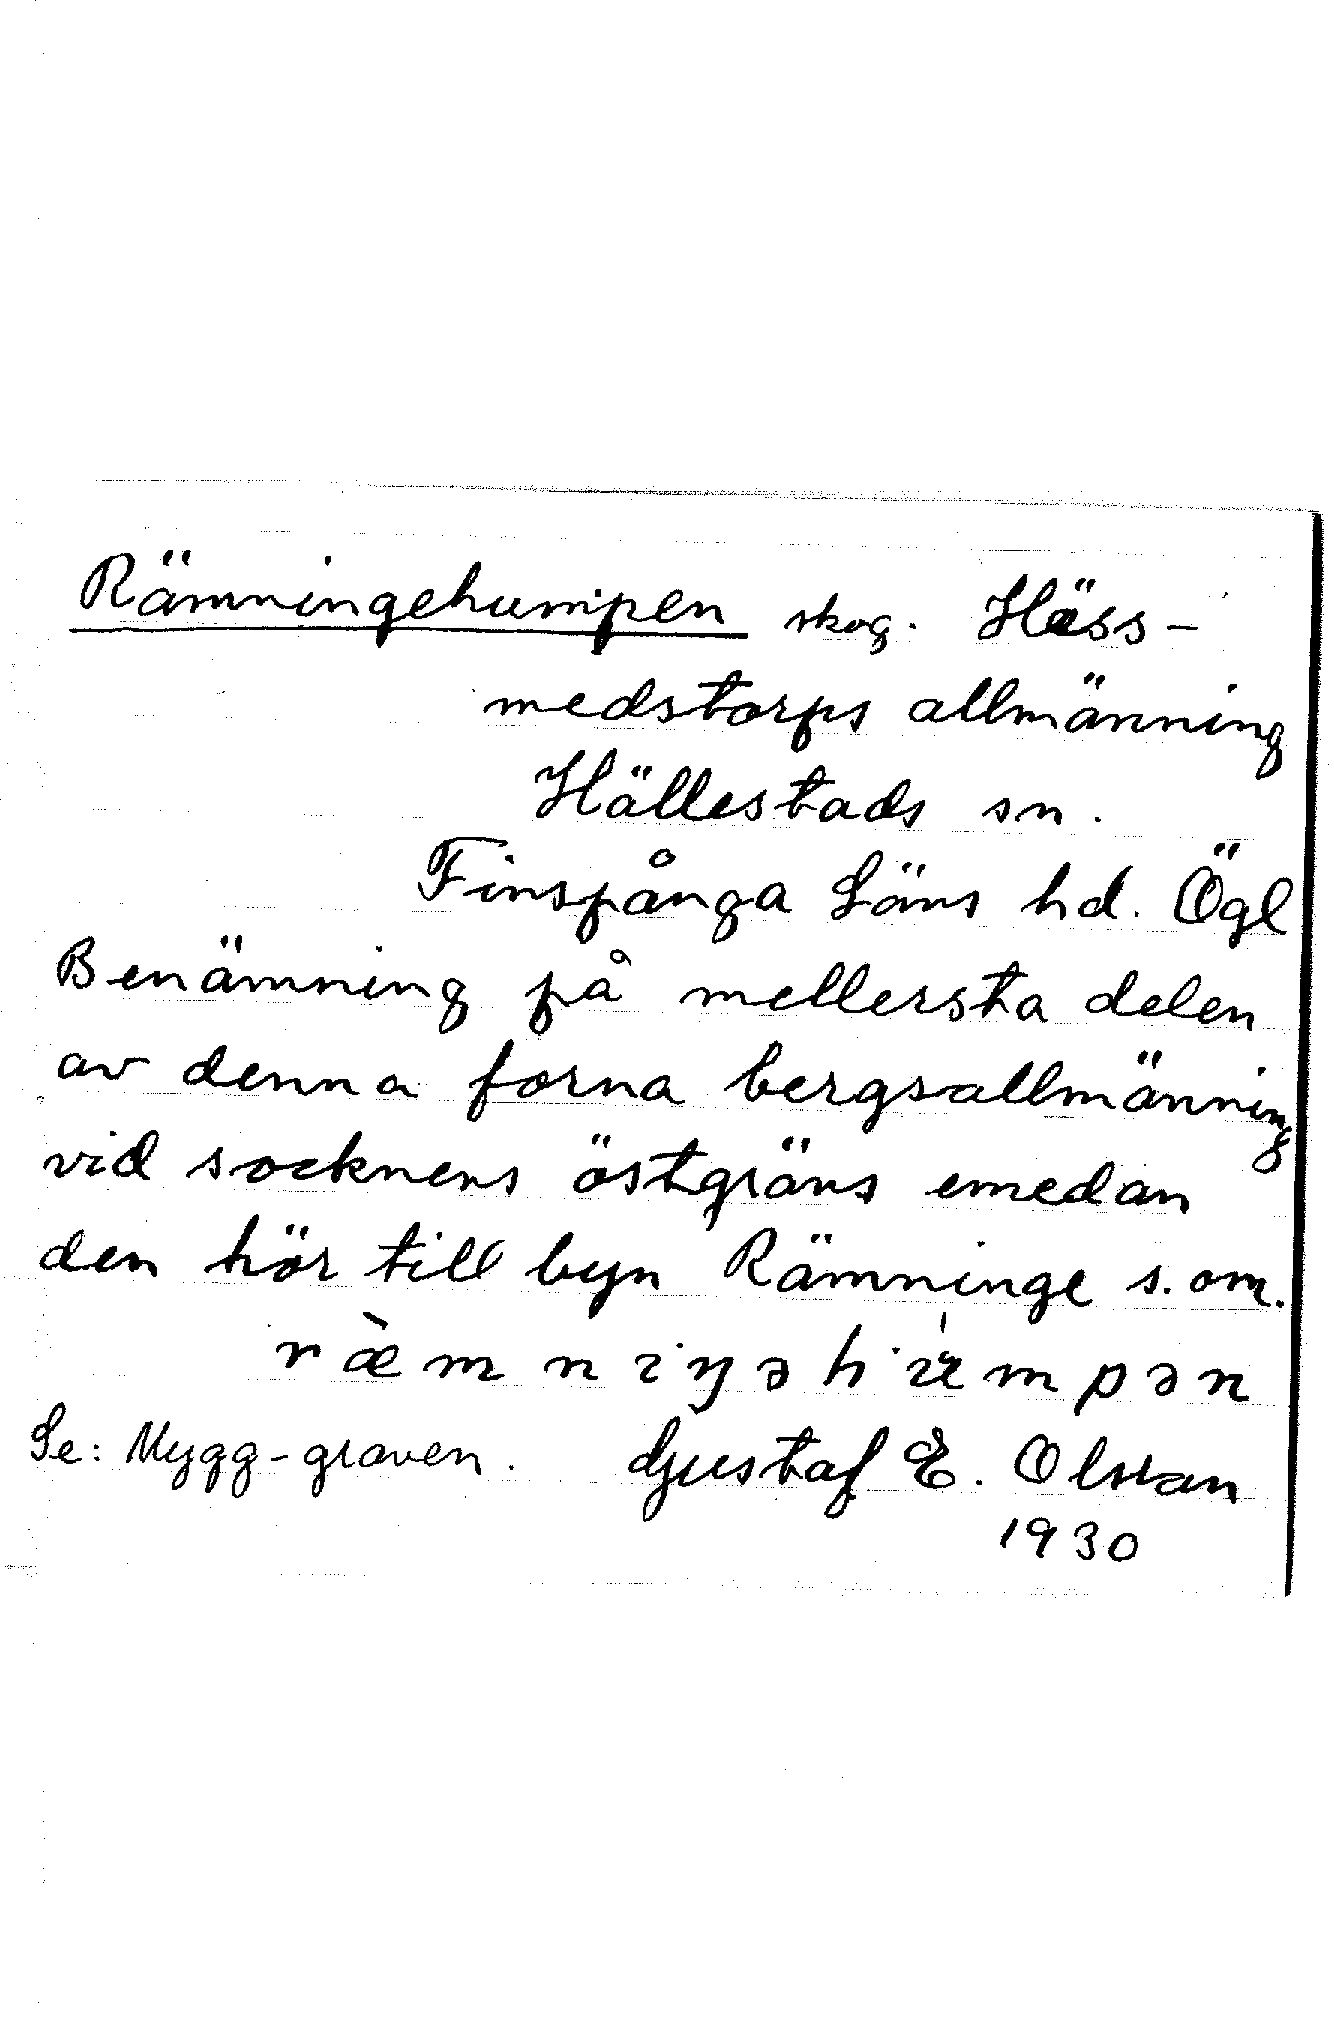 Rämningehumpen skog. Häss-
medstorps allmänning
Hällestads sn.
Finspånga Läns hd. Ögl
Benämning på mellersta delen
av denna forna bergsallmänning
vid socknens östgräns emedan
den hör till byn Rämninge s. om.
Se: Mygg-graven. Gustaf E. Olsson
1930